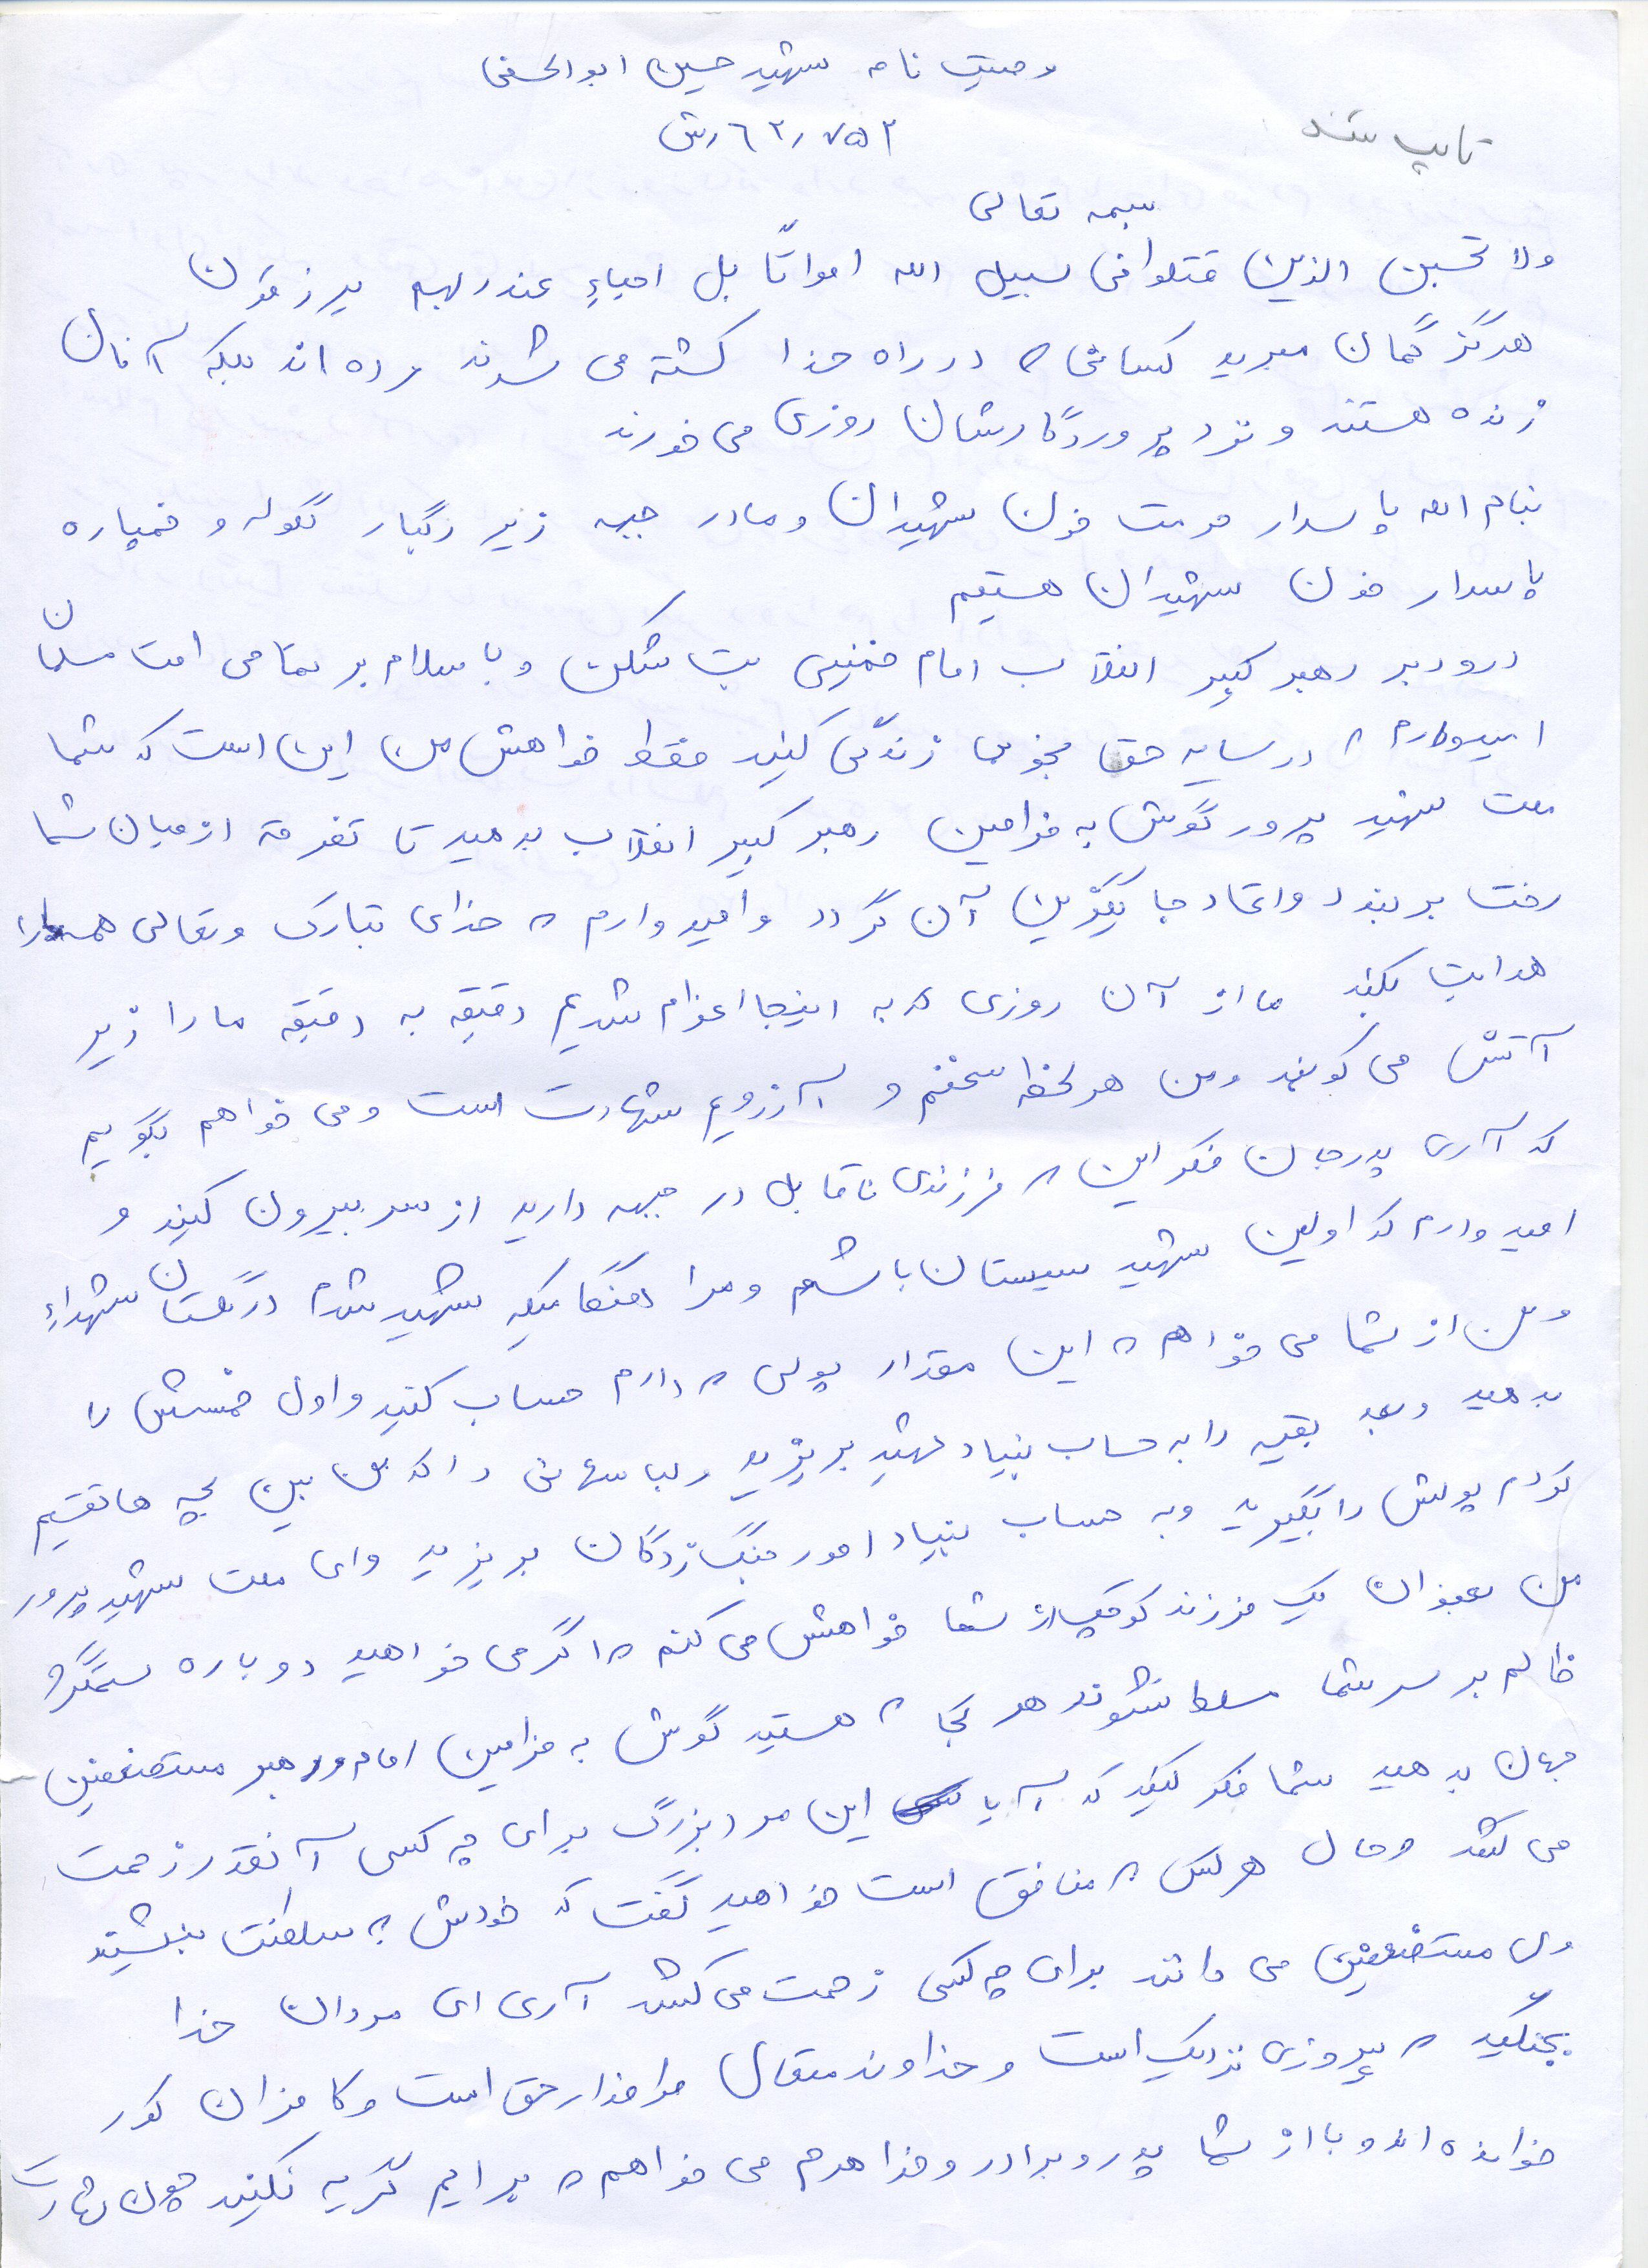 وصیت نامه شهید حسین ابوالحسنی
تایپ شد
بسمه تعالی
ولا تحسبن الذین قتلوا فی سبیل الله امواتاً بل احیاءِ عند ربهم یرزقون
هرگز گمان مبرید کسانی که در راه خدا کشته می شوند مرده اند بلکه آنان
زنده هستند و نزد پروردگارشان روزی می خورند
بنام الله پاسدار حرمت خون شهیدان و ما در جبهه زیر رگبار گلوله و خمپاره
پاسدار خون شهیدان هستیم
درود بر رهبر کبیر انقلاب امام خمینی بت شکن و با سلام بر تمامی امت مسلمان
امیدوارم که در سایه حق بخوبی زندگی کنید فقط خواهش من این است که شما
ملت شهید پرور گوش به فرامین رهبر کبیر انقلاب بدهید تا تفرقه از میان شما
رخت بر بندد و اتحاد جایگزین آن گردد و امیدوارم که خدای تبارک و تعالی همه را
هدایت بکند ما از آن روزی که به اینجا اعزام شدیم دقیقه به دقیقه ما را زیر
آتش می کوبند و من هر لحظه سخنم و آرزویم شهادت است و می خواهم بگویم
که آری پدر جان فکر این که فرزندی ناقابل در جبهه دارید از سر بیرون کنید و
امیدوارم که اولین شهید سیستان باشم و مرا هنگامیکه شهید شدم در گلستان شهداءِ
و من از شما می خواهم که این مقدار پولی که دارم حساب کنید و اول خمسش را
بدهید و بعد بقیه را به حساب بنیاد شهید بریزید و لباسهائی را که من بین بچه ها تقسیم
کردم پولش را بگیرید و به حساب بنیاد امور جنگ زدگان بریزید و ای ملت شهید پرور
من بعنوان یک فرزند کوچک از شما خواهش می کنم که اگر می خواهید دوباره ستمگر
ظالم بر سر شما مسلط نشوند هر کجا که هستید گوش به فرامین امام و رهبر مستضعفین
جهان بدهید شما فکر کنید که آیا این مرد بزرگ برای چه کسی آنقدر زحمت
می کشد و حال هر کس که منافق است خواهید گفت که خودش به سلطنت بنشیند
ولی مستضعفین می دانند برای چه کسی زحمت می کشد آری ای مردان خدا
بجنگید که پیروزی نزدیک است و خداوند متعال طرفدار حق است و کافران کور
خوانده اند و با از شما پدر و برادر و خواهرم می خواهم که برایم گریه نکنید چون شهادت